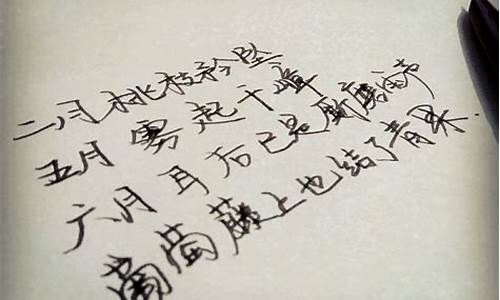 二月桃枝秾坠
五月雾起千嶂
六月耳后已是厮磨
葡萄藤上也结了青果